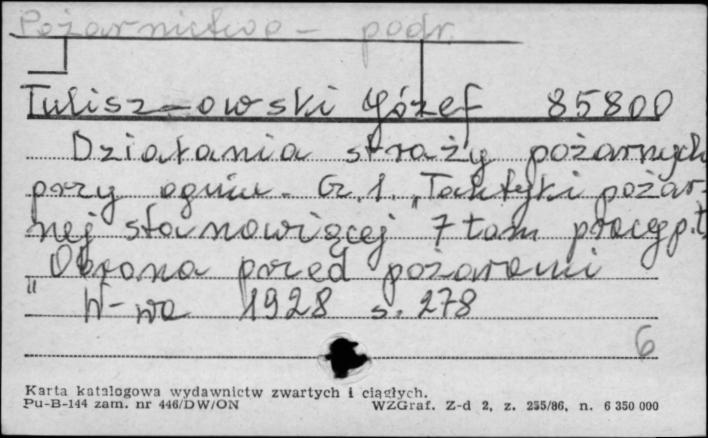 Pożarnictwo - podr.
Tuliszowski Józef 85800
Działania straży pożarnych
przy ogniu. Cz. 1. "Taktyki pożar-
nej stanowiącej 7 tom pracy p.t.
"Obrona przed pożarami
W-wa 1928 s. 278
6
Karta katalogowa wydawnictw zwartych i ciągłych.
Pu-B-144 zam. nr 446/DW/ON WZGraf. Z-d 2, z. 255/86, n. 6 350 000